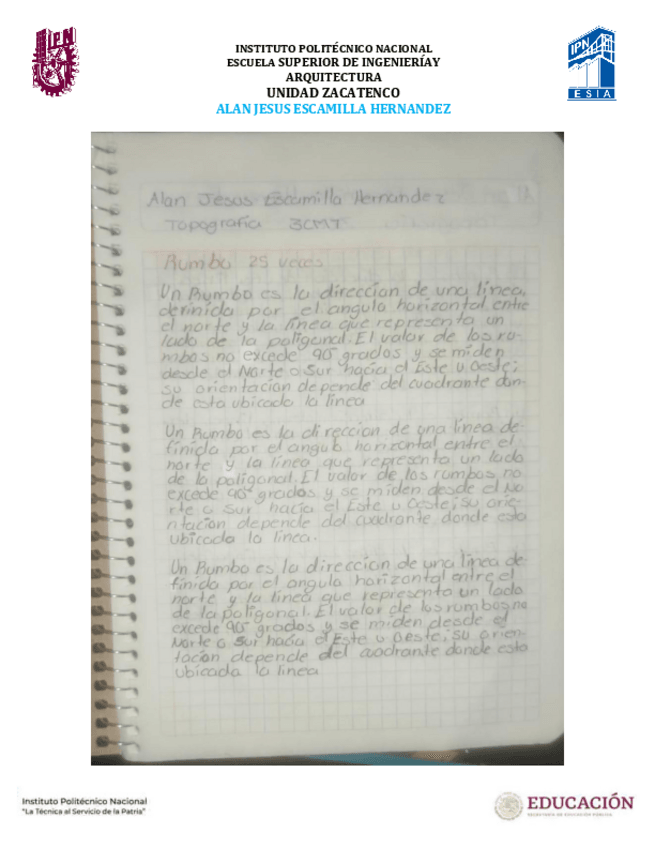 IPN
INSTITUTO POLITÉCNICO NACIONAL
ESCUELA SUPERIOR DE INGENIERÍAY
ARQUITECTURA
UNIDAD ZACATENCO
ALAN JESUS ESCAMILLA HERNANDEZ
IPN
ESIA
Alan Jesus Escamilla Hernandez
Topografía 3CM7
Rumbo 25 veces
Un Rumbo es la direccion de una línea,
definida por el angulo horizontal entre
el norte y la línea que representa un
lado de la poligonal. El valor de los ru-
mbos no excede 90° grados y se miden
desde el Norte o Sur hacia el Este u Oeste;
su orientacion depende del cuadrante don-
de esta ubicada la linea
Un Rumbo es la direccion de una línea de-
finida por el angulo horizontal entre el
norte y la línea que representa un lado
de la poligonal. El valor de los rumbos no
excede 90° grados y se miden desde el No-
rte o Sur hacia el Este u Oeste; su orie-
ntacion depende del cuadrante donde esta
ubicada la linea.
Un Rumbo es la direccion de una línea de-
finida por el angulo horizontal entre el
norte y la linea que representa un lado
de la poligonal. El valor de los rumbos no
excede 90° grados y se miden desde el
Norte o Sur hacia el Este u Oeste; su orien-
tacion depende del cuadrante donde esta
ubicada la linea
Instituto Politécnico Nacional
"La Técnica al Servicio de la Patria"
EDUCACIÓN
SECRETARÍA DE EDUCACIÓN PÚBLICA